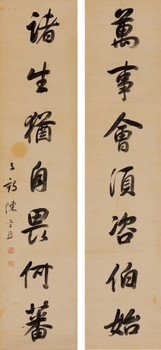 萬事會須咨伯始
諸生猶自畏何蕃